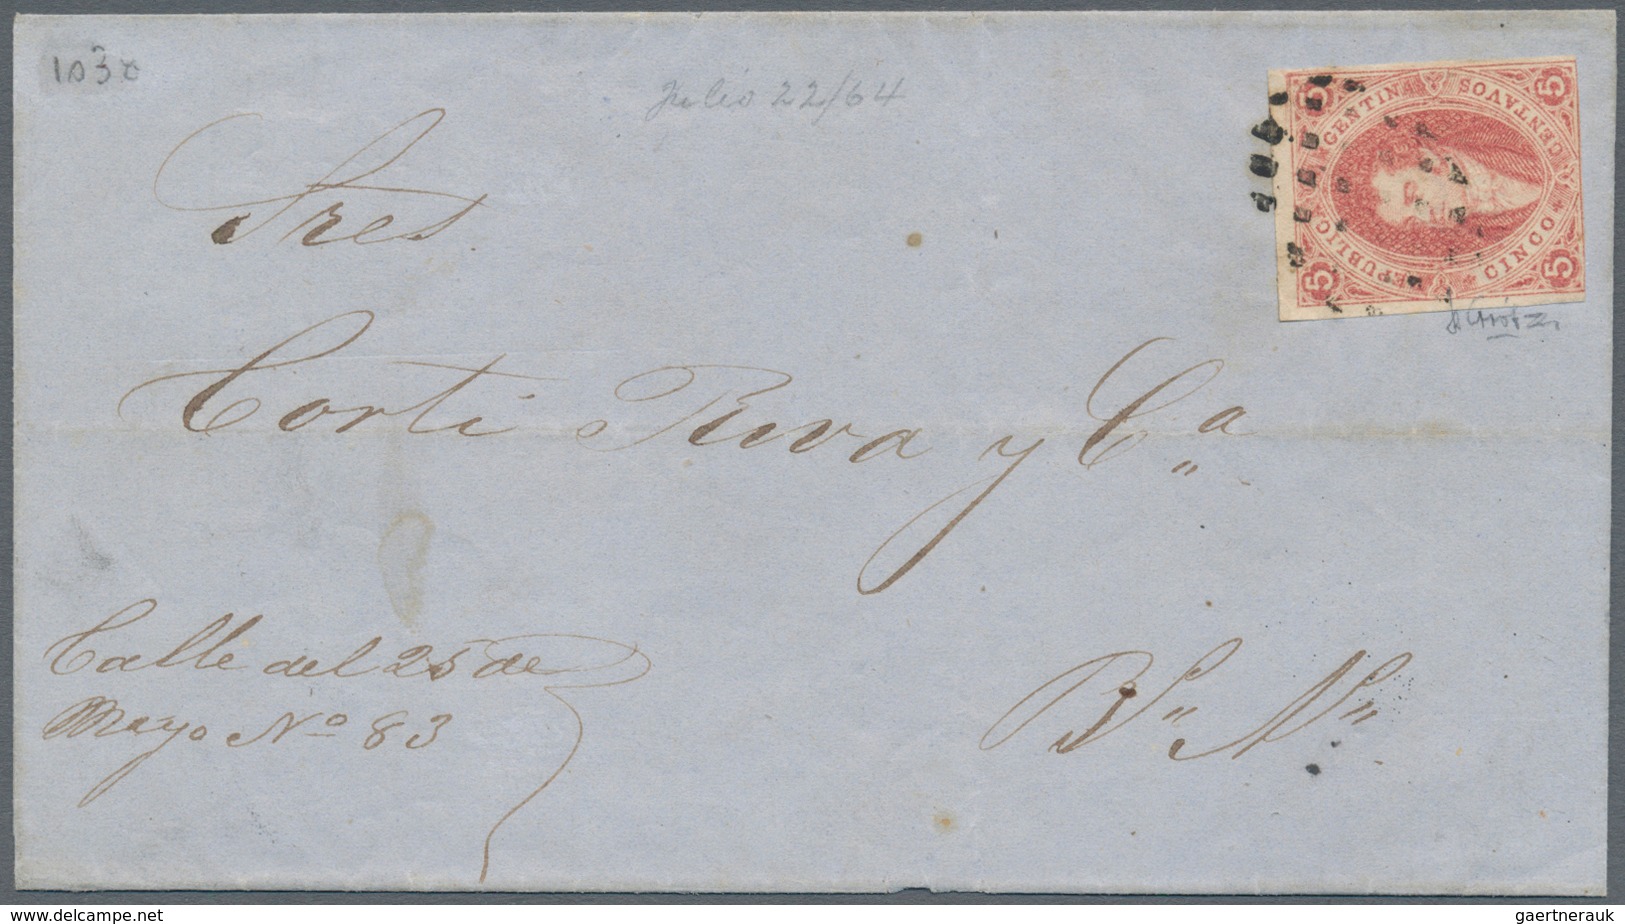 103
Julio 22/64
5 5 5 5
REPUBLICA ARGENTINA
CINCO CENTAVOS
Sres
Corti Riva y Ca
Calle del 25 de
Mayo No 83
Bs As
delcampe.net
gaertnerauk